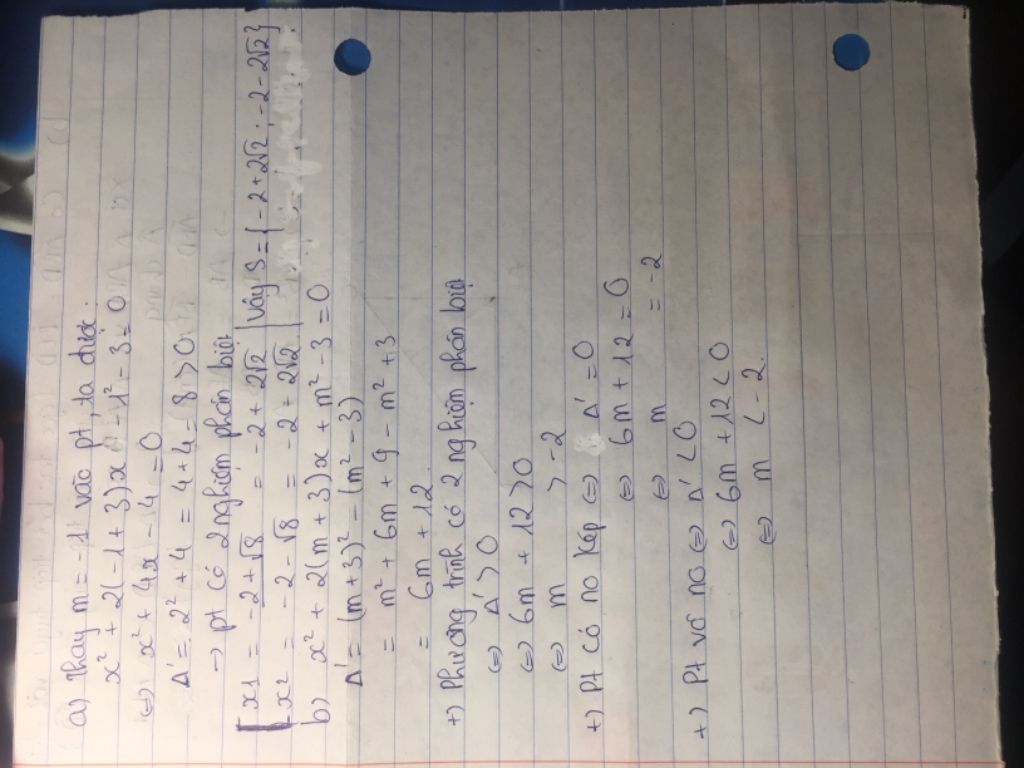 a) Thay m = -1 vào pt, ta được:
x² + 2(-1+3)x - 1² - 3 = 0
⇔ x² + 4x - 4 = 0
Δ' = 2² + 4 = 4+4 = 8 > 0
→ pt có 2 nghiệm phân biệt
[ x1 = -2+√8 = -2 + 2√2 | Vậy S = { -2 + 2√2 ; -2 - 2√2 }
[ x2 = -2 - √8 = -2 + 2√2 |
b) x² + 2(m+3)x + m² - 3 = 0
Δ' = (m+3)² - (m² - 3)
= m² + 6m + 9 - m² + 3
= 6m + 12
+) Phương trình có 2 nghiệm phân biệt
⇔ Δ' > 0
⇔ 6m + 12 > 0
⇔ m > -2
+) Pt có no kép ⇔ Δ' = 0
⇔ 6m + 12 = 0
⇔ m = -2
+) Pt vô no ⇔ Δ' < 0
⇔ 6m + 12 < 0
⇔ m < -2.